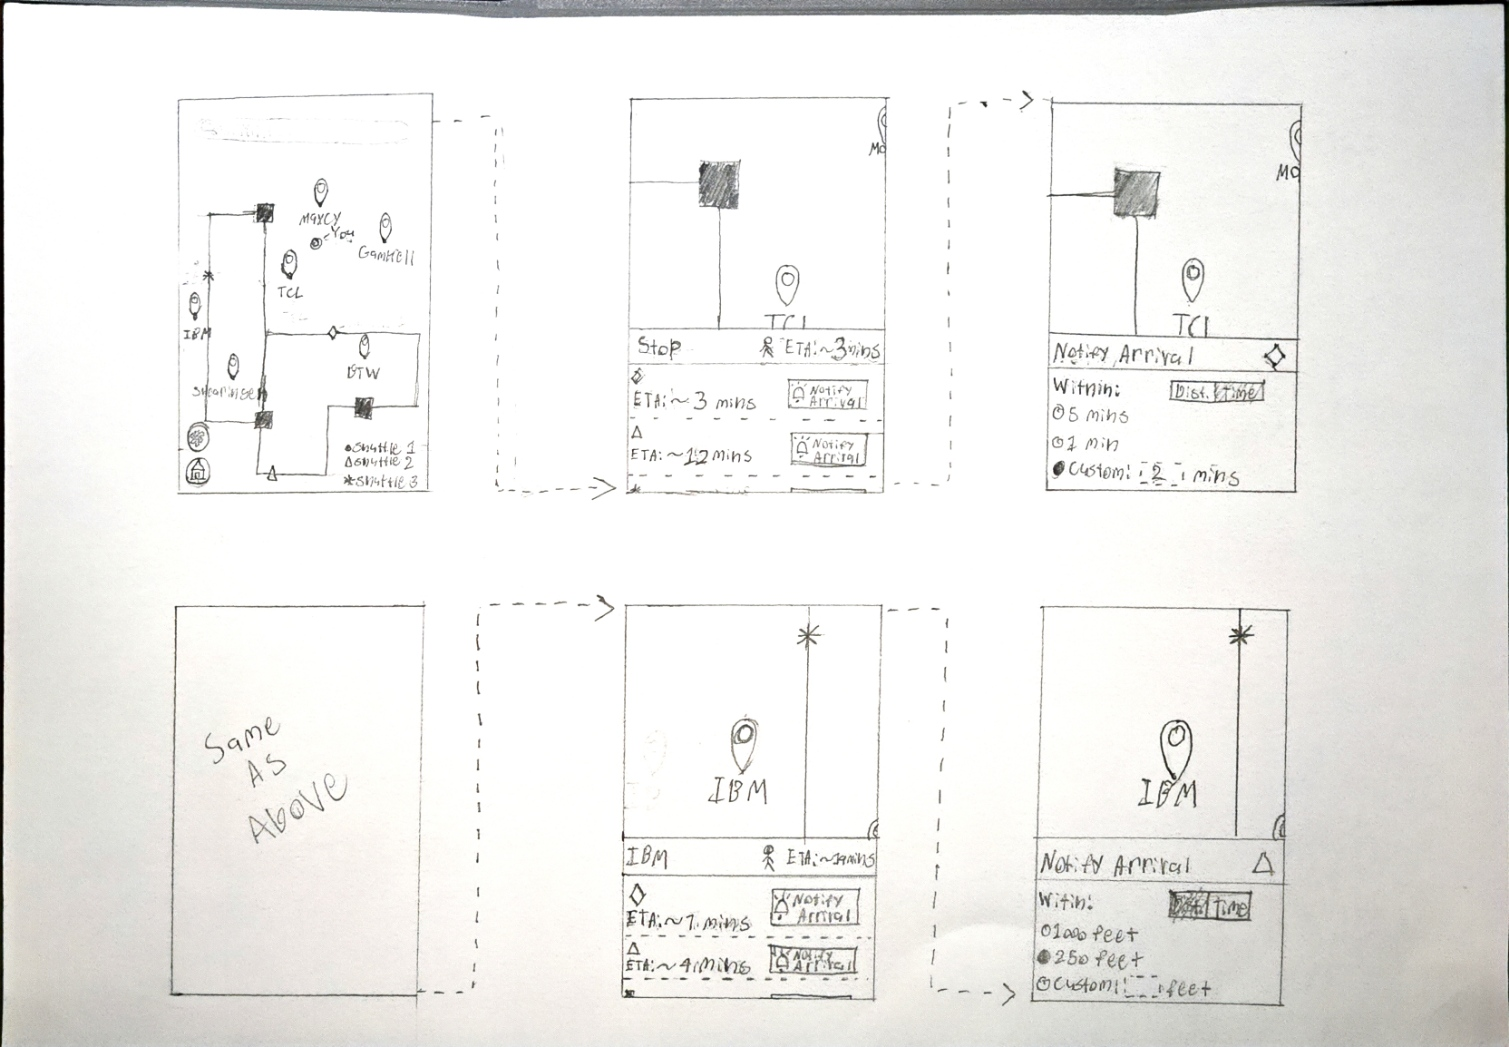 Maxcy
You
Gambell
TCL
IBM
BTW
Shuttle 1
Shuttle 2
Shuttle 3
Mo
TCL
Stop
ETA:~3mins
ETA:~3 mins
Notify
Arrival
ETA:~12mins
Notify
Arrival
Mo
TCL
Notify Arrival
Within:
Dist. time
5 mins
1 min
Custom: 2 mins
Same
As
Above
IBM
IBM
ETA:~19mins
ETA:~7 mins
Notify
Arrival
ETA:~4 mins
Notify
Arrival
IBM
Notify Arrival
Witin:
Dist. time
1000 feet
250 feet
Custom: feet